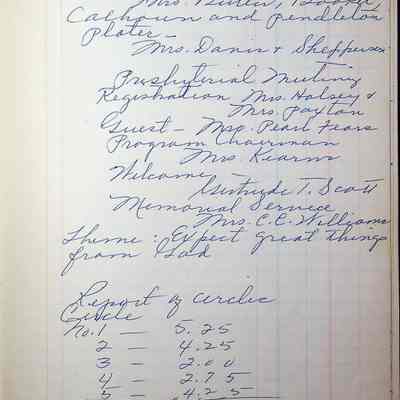 Mrs.
Calhoun and Pendleton
Plates —
Mrs. Danis & Shepperson
Presbyterial Meeting
Registration Mrs. Halsey &
Mrs. Payton
Guest — Mrs. Pearl Fears
Program Chairman
Mrs. Kearns
Welcome —
Gertrude T. Scott
Memorial Service
Mrs. C.C. Williams
Theme: Expect great things
from God
Report of circles
Circle
No. 1 — 5.25
2 — 4.25
3 — 2.00
4 — 2.75
5 — 4.25